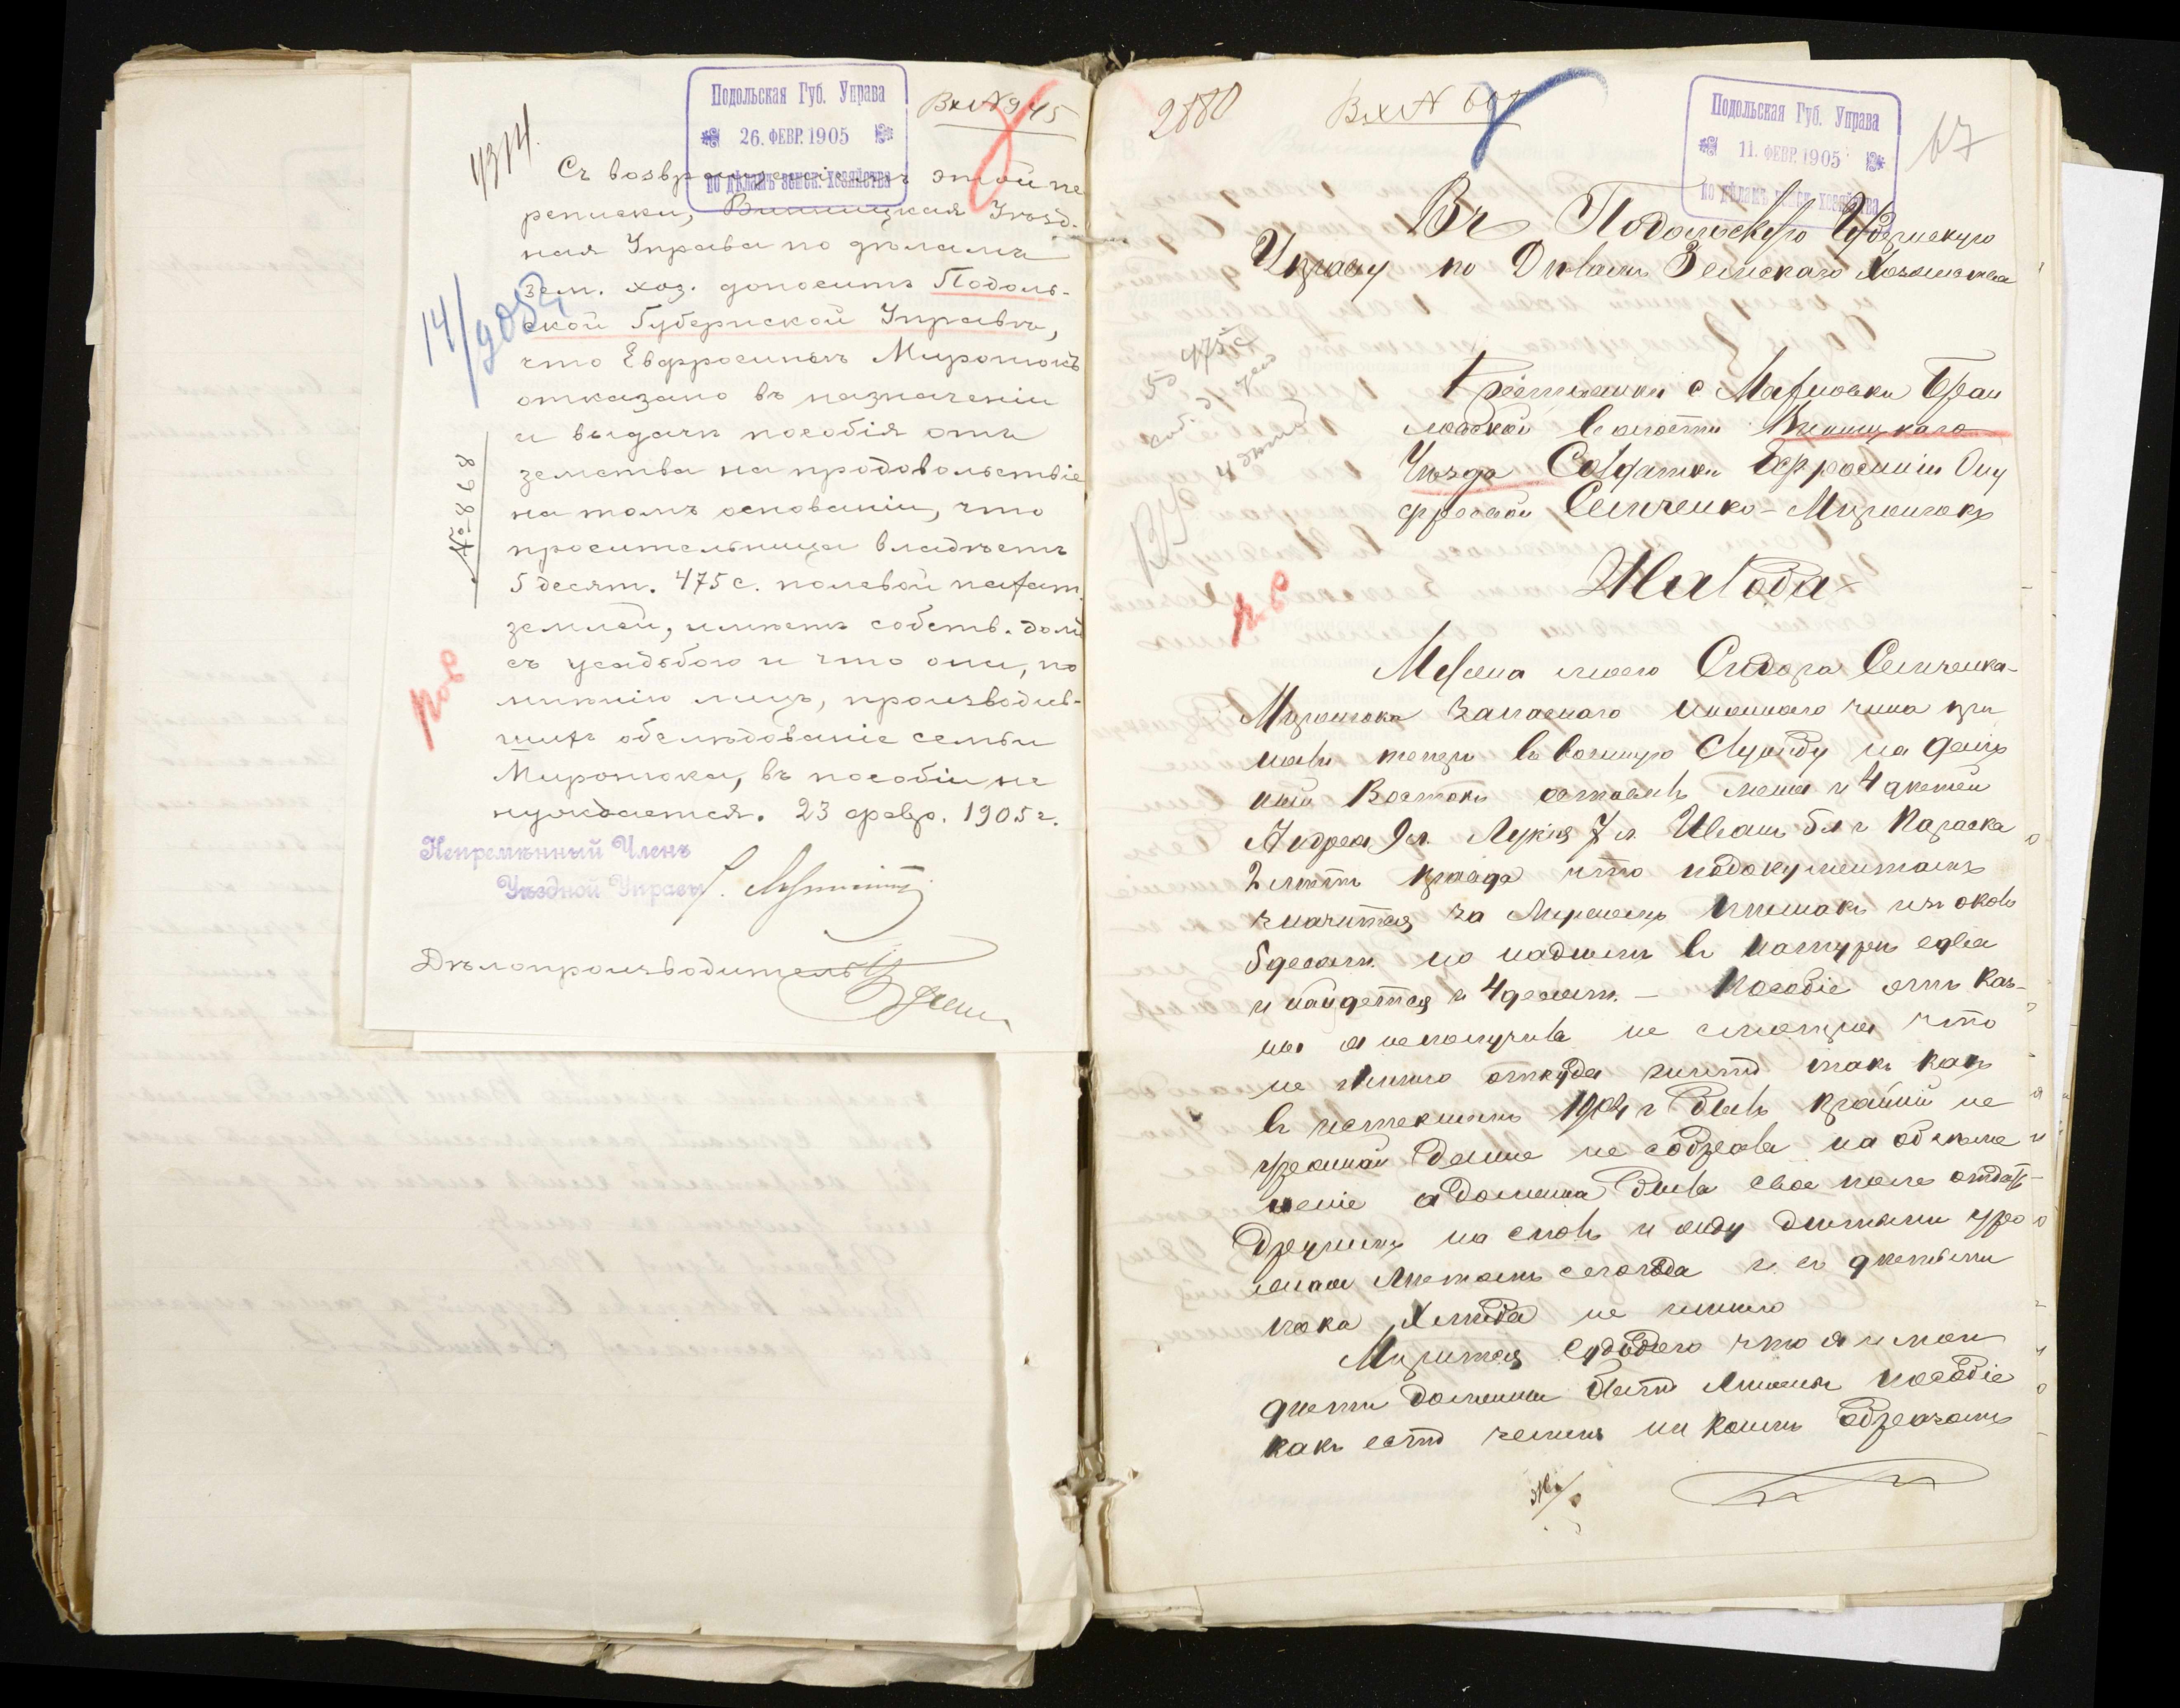 Подольская Губ. Управа
26. ФЕВР. 1905
по дѣламъ земск. хозяйства
Вх № 945
4314.
Съ возвращеніемъ этой пе
реписки, Винницкая Уѣзд-
ная Управа по дѣламъ
зем. хоз. доноситъ Подоль-
ской Губернской Управѣ,
что Евфросиньѣ Миронюкъ
отказано въ назначеніи
и выдачѣ пособія отъ
земства на продовольствіе
на томъ основаніи, что
просительница владѣетъ
5 десят. 475 с. полевой пахат.
землей, имѣетъ собств. домъ
съ усадьбою и что она, по
мнѣнію лицъ, производив-
шихъ обслѣдованіе семьи
Миронюка, въ пособіи не
нуждается. 23 февр. 1905 г.
Непремѣнный Членъ
Уѣздной Управы
Дѣлопроизводитель
№ 868
14/
2880
Вх №
Подольская Губ. Управа
11. ФЕВР. 1905
по дѣламъ земск. хозяйства
67
Въ Подольскую Губернскую
Управу по Дѣламъ Земскаго Хозяйства
5 д 475 с
4 дѣтей
Крестьянки с
Волости Винницкаго
Уѣзда Солдатки Ефросиніи Ону
фріевой Семченко-Миронюкъ
Жалоба
Мужа моего Сидора Семченка-
Миронюка Запаснаго нижняго чина при
няли теперь въ военную Службу на Даль
ній Востокъ оставилъ меня и 4 дѣтей
Андрея 9 л. Лукія 7 л. Иванъ 5 л и Параска
2 лѣтъ правда что подокументамъ
значится за Мужемъ
5 десят. но надѣлъ въ натурѣ едва
и найдется и 4 десят. - Пособіе отъ Каз-
ны я неполучила не смотря что
не имѣю откуда жить такъ какъ
въ истекшемъ 1904 г былъ крайній не
урожай даже не собрала на обсѣме
неніе а должна была свое поле отдать
другимъ на снопъ и буду
лѣтомъ сегогода г. съ дѣтьми
пока хлѣба не имѣю
что я и мои
дѣти должны быть лишены пособіе
какъ есть